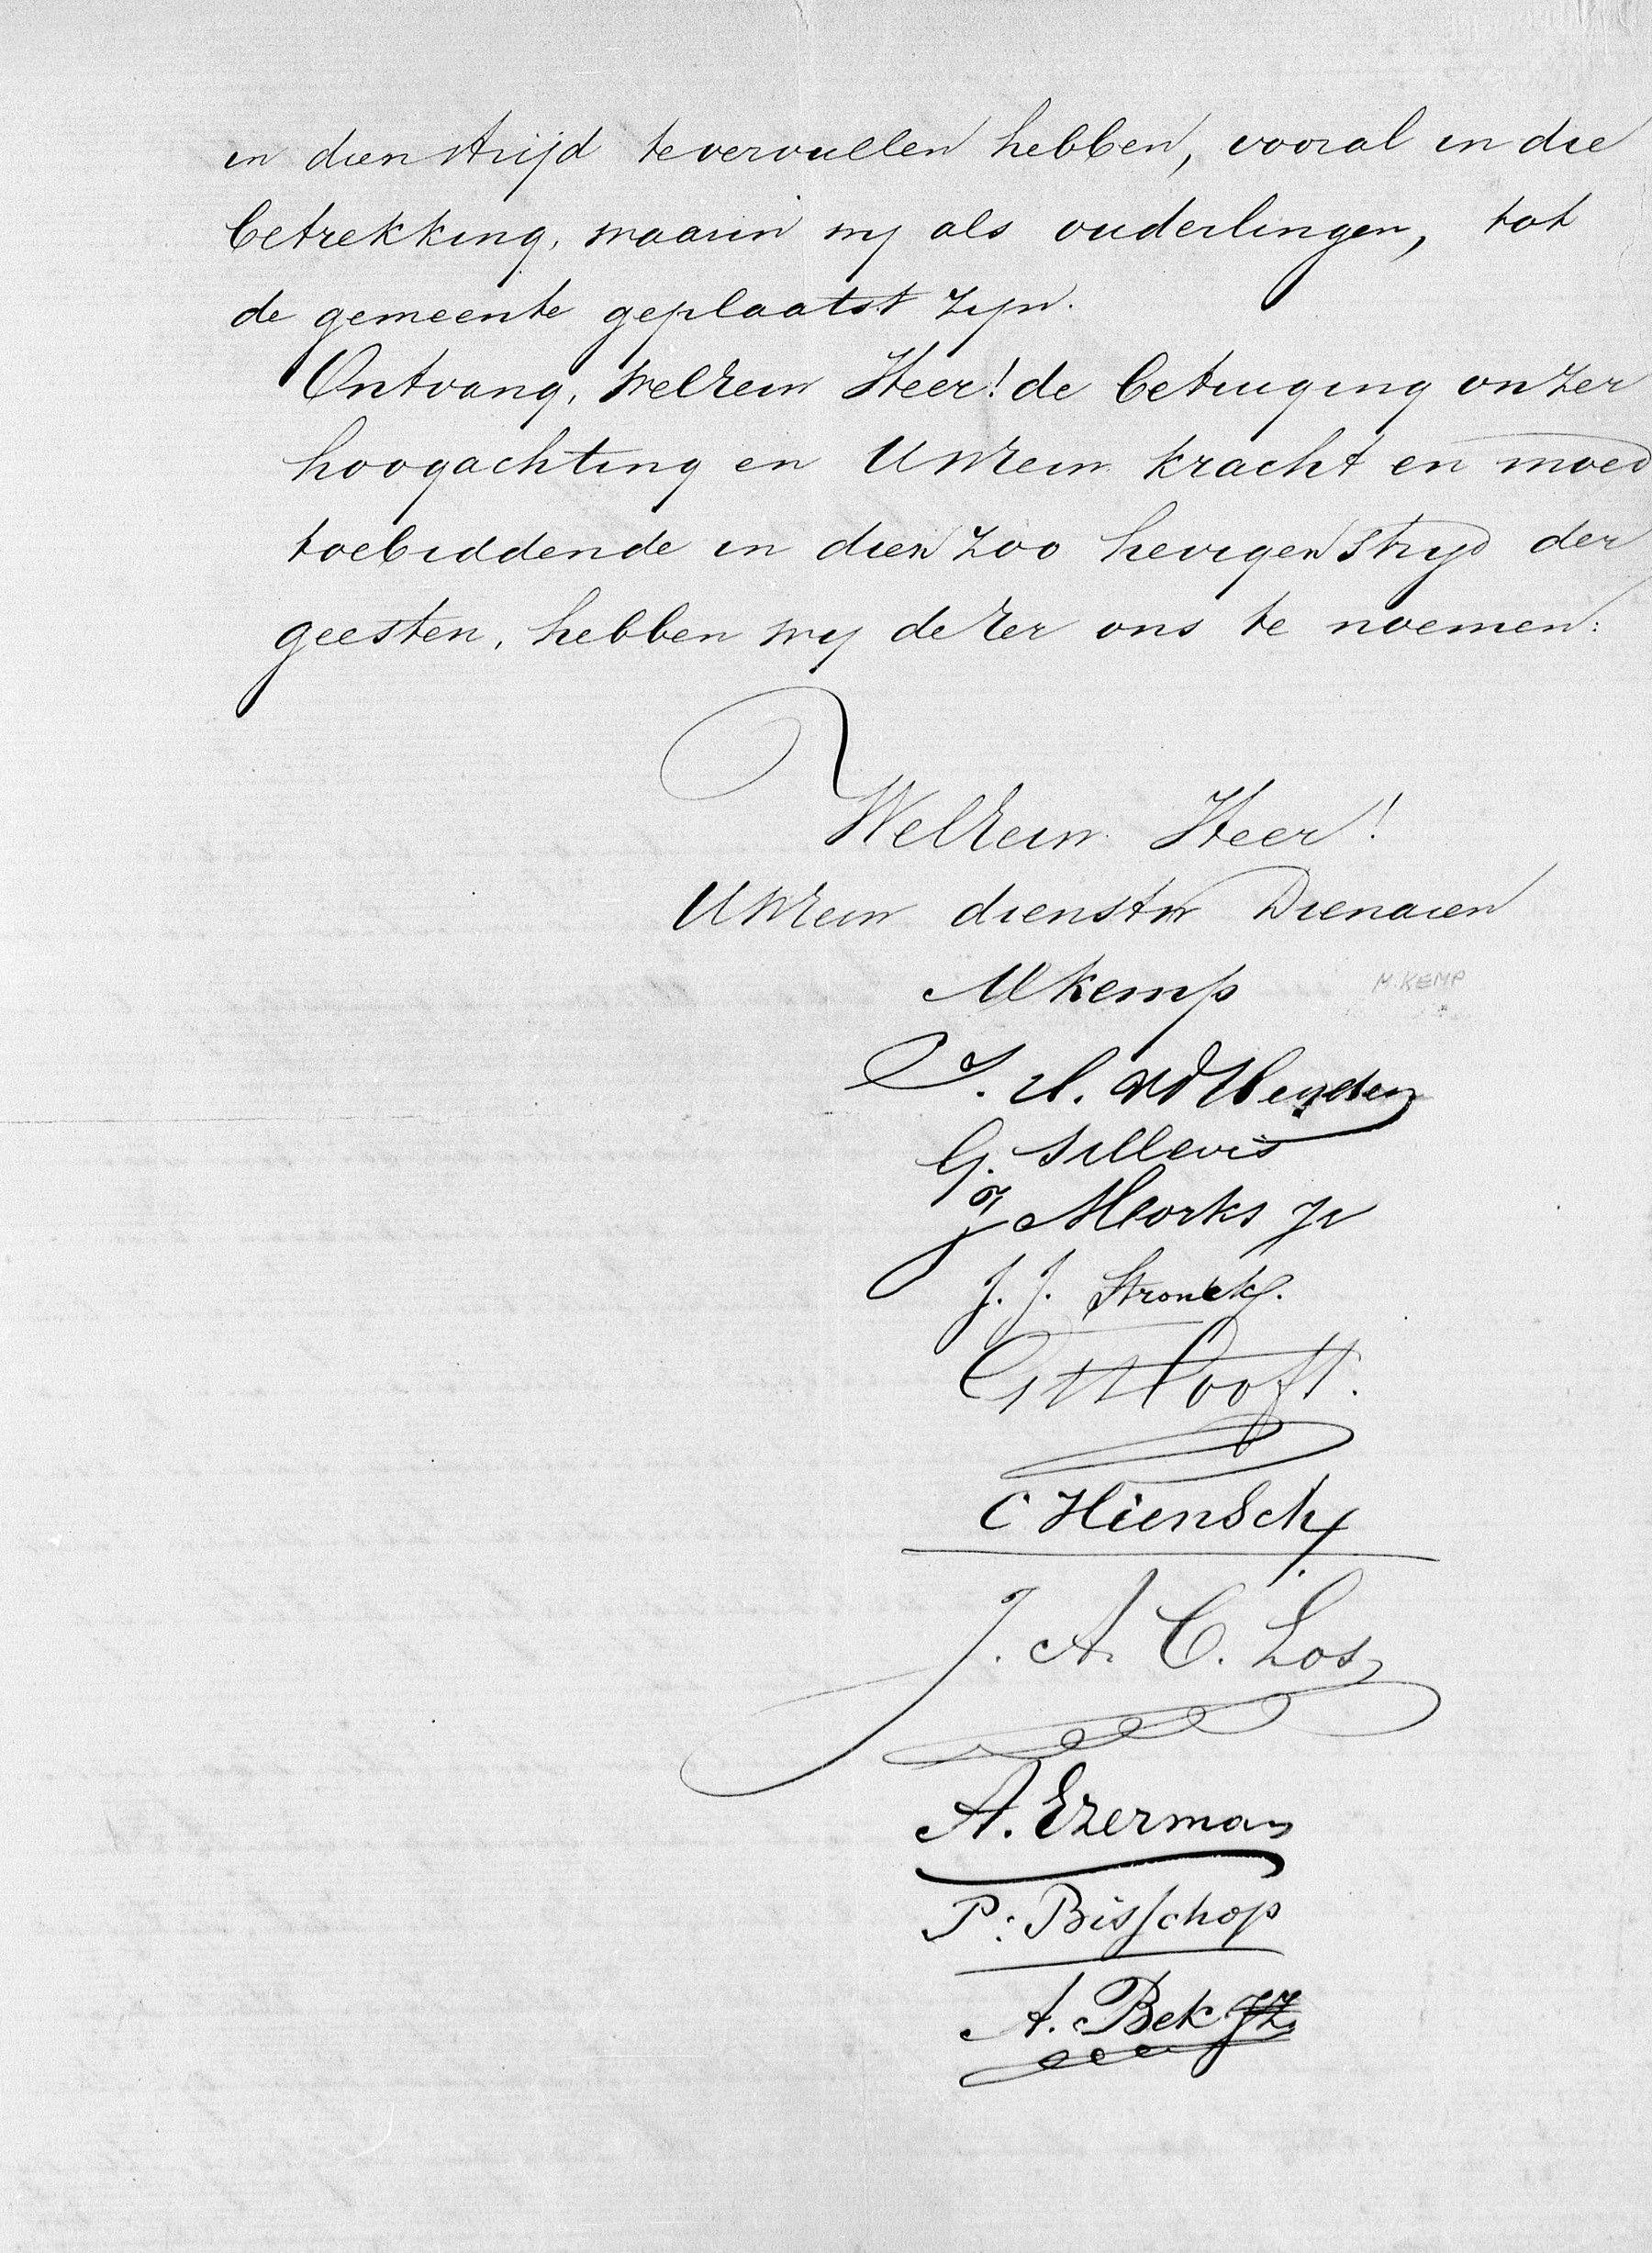 in dien strijd te vervullen hebben, vooral in die
betrekking, waarin wij als ouderlingen, tot
de gemeente geplaatst zijn.
Ontvang, WelEerw Heer! de betuiging onzer
hoogachting en UwEerw kracht en moed
toebiddende in dien zoo hevigen strijd der
geesten, hebben wij de Eer ons te noemen:
WelEerw Heer!
UwEerw dienstw Dienaren
M Kemp
M. KEMP
J. H. vd Heyden
G. Sillevis
J Morks Jr
J. J. Stronck.
Hooft.
C Hiensch
J. A. C. Los
A. Ezerman
P. Bisschop
A. Bek JZ.